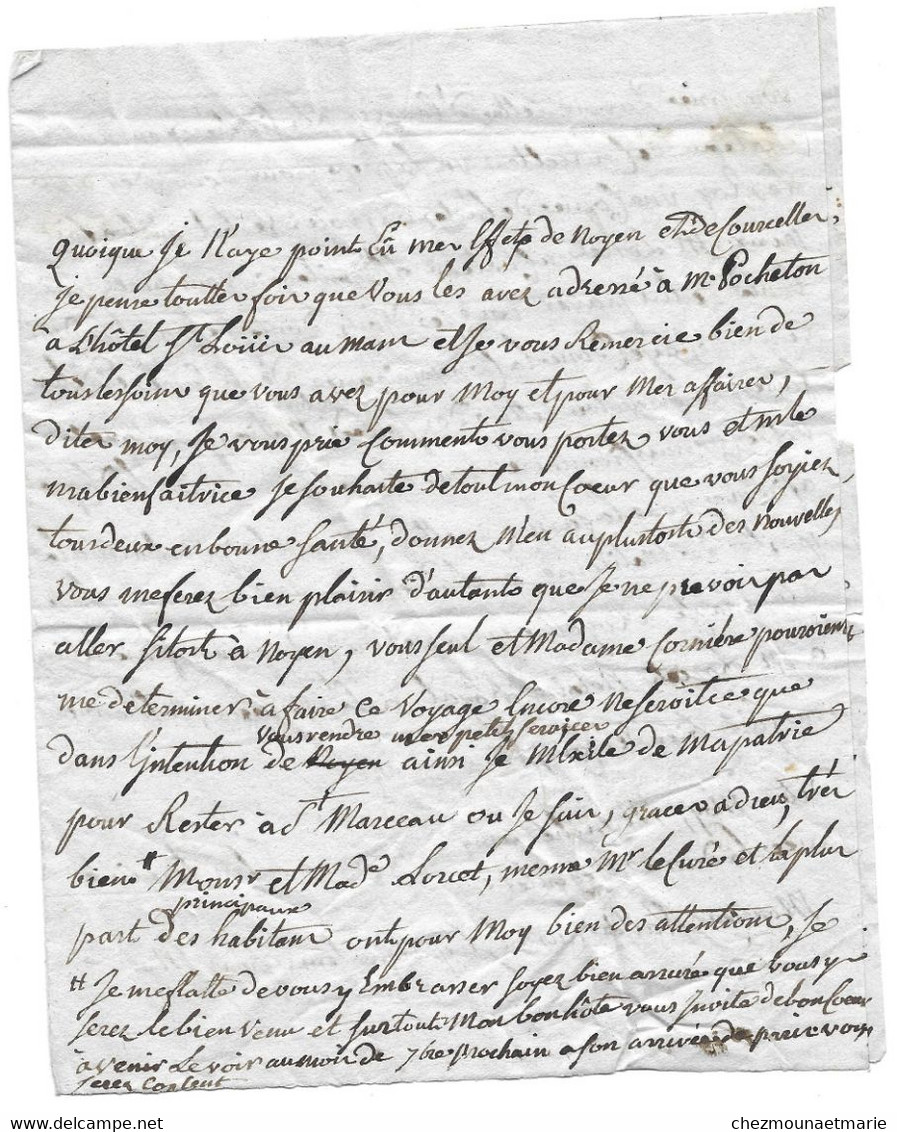 quoique Je n'aye point Eü mes Effets de Noyen et de Courcelles,
Je pense touttes fois que Vous les avez adressé à Mr Pocheton
a L'hôtel St Loüis au mans et Je vous Remercie bien de
tous les soins que vous avez pour Moy et pour Mes affaires,
dites moy, Je vous prie Comment vous portez vous et mde
ma bienfaitrice Je souhaite de tout mon Coeur que vous soyiez
tous deux en bonne Santé, donnez M'en au plustost des Nouvelles
vous me ferez bien plaisir d'autant que Je ne prevois pas
aller sitost a Noyen, vous seul et Madame Cornière pouroient
me determiner à faire ce Voyage Encore Ne seroit ce que
vous rendre mes petits services
dans l'Intention de Noyen ainsi Je M'exile de Ma patrie
pour Rester à St Marceau ou Je suis, graces a dieu, très
bien # Monsr et Made Lorcet, mesme Mr le Curé et la plus
principaux
part des habitans ont pour Moy bien des attentions, Je
# Je me flatte de vous y Embrasser soyez bien assuré que vous y
serez le bien Venu et surtout Mon bon hôte vous Invite de bon Coeur
à venir Le voir au mois de 7bre prochain a son arrivée de vous
serez Content
chezmounaetmarie